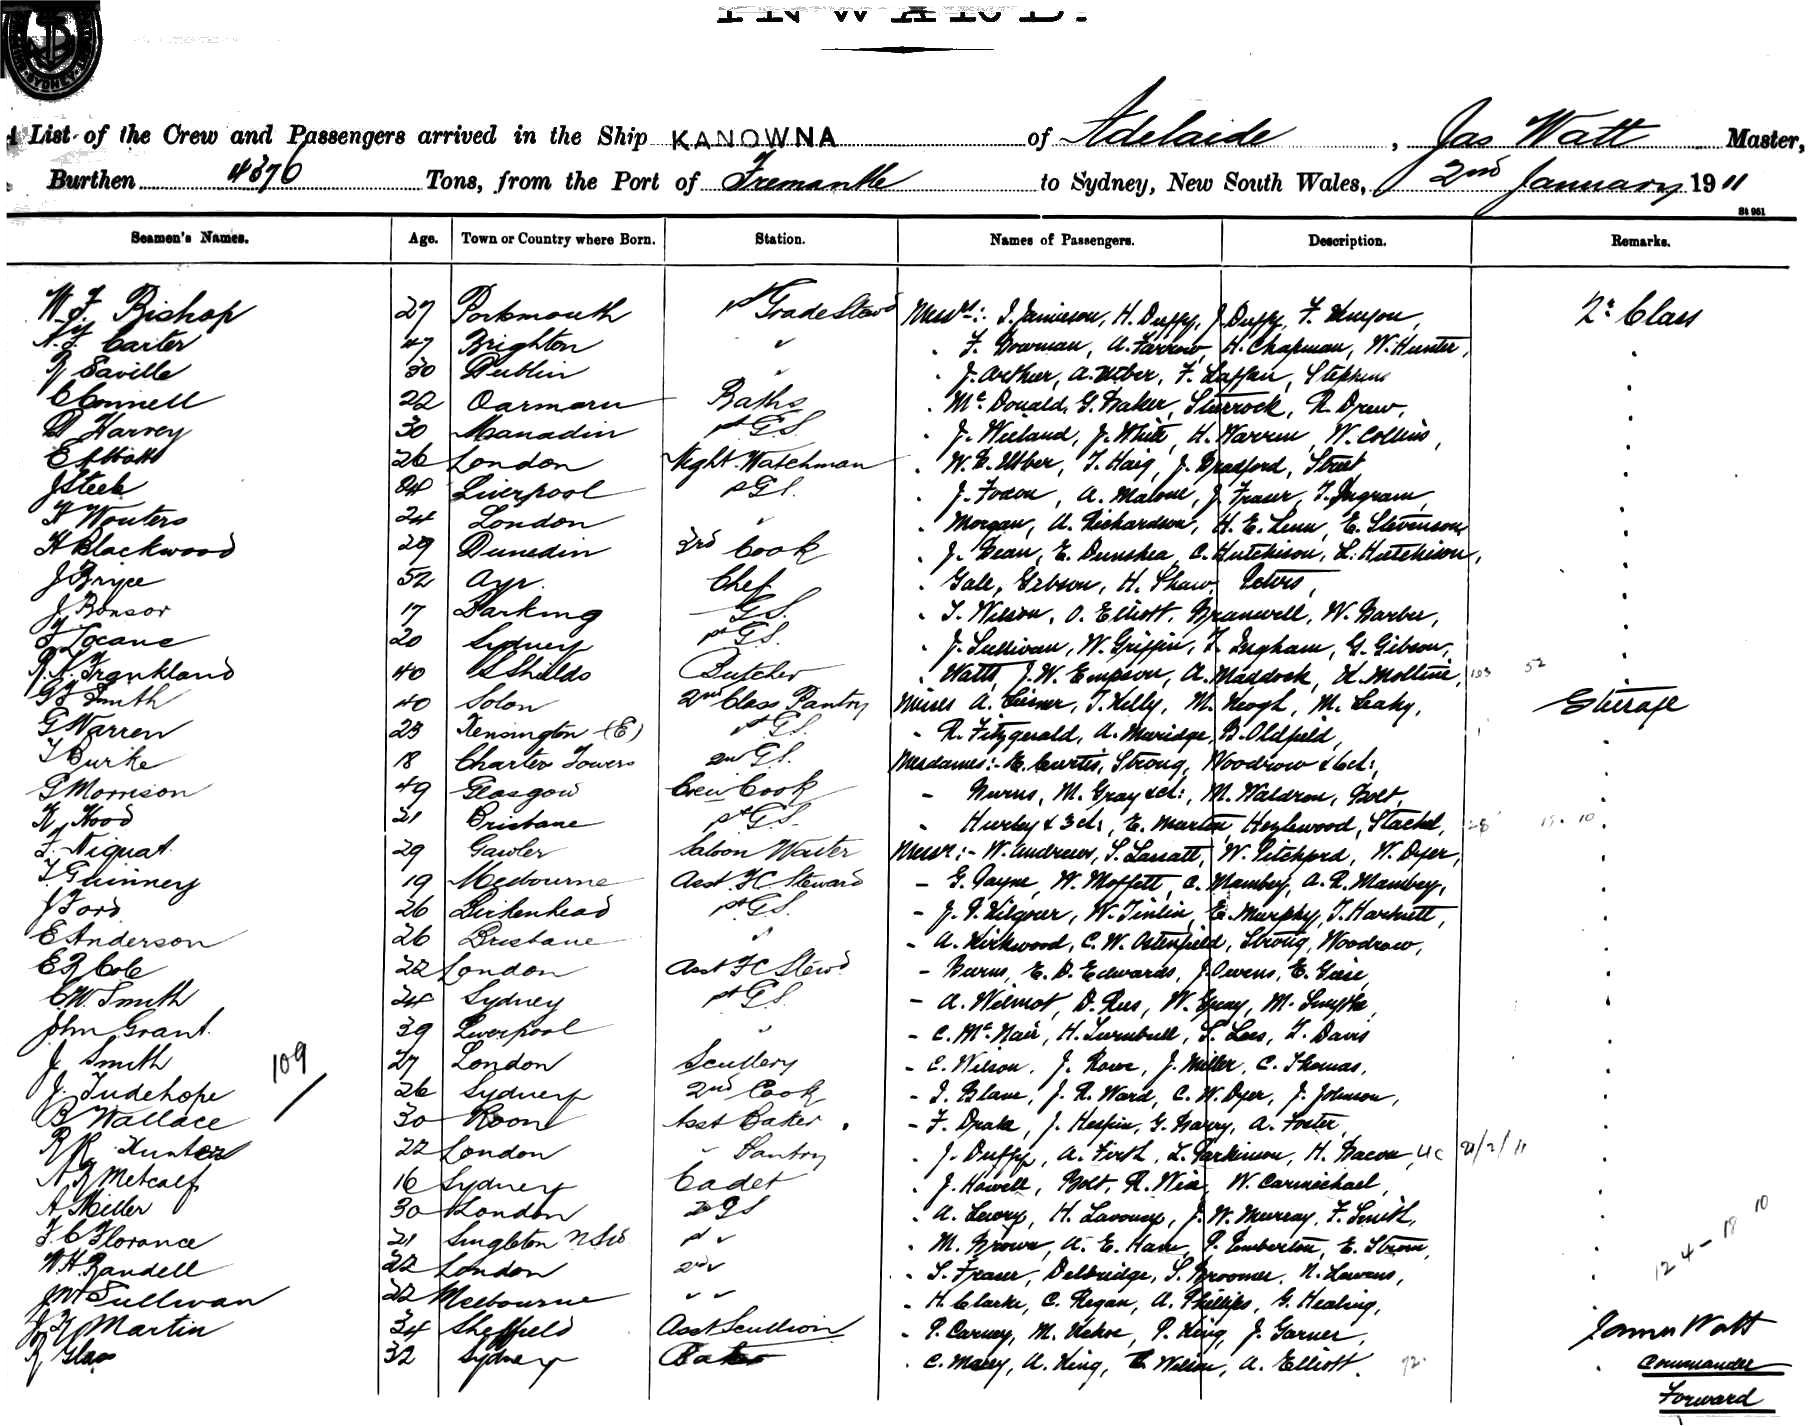 INWARD.
SYDNEY
A List of the Crew and Passengers arrived in the Ship KANOWNA of Adelaide, Jas Watt Master,
Burthen 4376 Tons, from the Port of Fremantle to Sydney, New South Wales, 2nd January 1911
St 961
Seamen's Names. Age. Town or Country where Born. Station. Names of Passengers. Description. Remarks.
W. J. Bishop 27 Portsmouth Trade Stewd Messrs:. J. Jamieson, H. Duffy, J. Duffy, F. Kenyon, 2n Class
Carter 47 Brighton " F. Bowman, A. Farrow, H. Chapman, W. Hunter,
R Saville 30 Dublin " J. Arthur, A. Ulber, F. Laffan, Stephens
C Connell 22 Oamaru Baths Mc Donald, G. Baker, Sturrock, R. Drew,
Harvey 30 Manadin pt G.S. J. Wieland, J. White, H. Warren, W. Collins,
E Abbott 26 London Night Watchman W. E. Ulber, T. Haig, J. Bradford, Street
J Steel 24 Liverpool pt G.S. J. Foxon, A. Malone, J. Fraser, T. Ingram,
Wouters 24 London " Morgan, A. Richardson, H. E. Lenn, E. Stevenson,
H Blackwood 29 Dunedin 3rd Cook J. Bean, E. Dunshea, C. Hutchison, L. Hutchison,
J Bryce 52 Ayr. Chef Gale, Gibson, H. Shaw, Peters,
J. Bonsor 17 Barking G.S. T. Wilson, O. Elliott, Branwell, W. Barber,
Locane 20 Sydney pt G.S. J. Sullivan, W. Griffin, T. Ingham, G. Gibson,
Frankland 40 S Shields Butcher Watts, J. W. Empson, A. Maddock, K. Molline, 103 52
G F Smith 40 Solon 2nd Class Pantry Misses A. Cisner, T. Kelly, M. Keogh, M. Leahy, Steerage
G Warren 23 Kensington (E) pt G.S. R. Fitzgerald, A. Muridge, B. Oldfield,
T Burke 18 Charters Towers 2nd G.S. Mesdames:- E. Curtis, Strong, Woodrow & 6 ch:,
G Morrison 49 Glasgow Crew Cook - Burns, M. Gray & ch:, M. Waldron, Bolt,
Hood 21 Brisbane pt G.S. Hurley & 3 ch:, E. Martin, Hazlewood, Stachel, 28 10
F. Niquat 29 Gawler Saloon Waiter Messrs:- W. Andrews, S. Lassatt, W. Pitchford, W. Dyer,
T Guinnery 19 Melbourne Asst F C Steward - G. Payne, W. Moffett, C. Mambey, A. R. Mambey,
J Ford 26 Birkenhead pt G.S. - J. P. Kilgour, W. Tinlin, E. Murphy, T. Hartnett,
E Anderson 26 Brisbane " - A. Kirkwood, C. W. Ostenfield, Strong, Woodrow,
E R Cole 22 London Asst F C Stewd - Burns, E. D. Edwards, J. Owens, E. Giese,
C W. Smith 24 Sydney pt G.S. - A. Wilmot, D. Rees, W. Gray, M. Smythe,
John Grant 39 Liverpool " - C. Mc Nair, H. Turnbull, S. Lees, T. Davis
J Smith 109 27 London Scullery - E. Wilson, J. Rowe, J. Miller, C. Thomas,
J. Tudehope 26 Sydney 2nd Cook - J. Blane, J. R. Ward, C. W. Dyer, J. Johnson,
B Wallace 30 Koon Asst Baker - F. Drake, J. Heslin, G. Barry, A. Foster,
R R Hunter 22 London " Pantry J. Duffy, A. Firth, L. Parkinson, H. Bacon,
A R Metcalf 16 Sydney Cadet J. Howell, Bolt, R. Wia, W. Carmichael,
A Miller 30 London 2n G S A. Lowry, H. Lavoney, J. W. Murray, F. Smith,
F. C Florance 21 Singleton NSW pt " M. Brown, A. E. Ham, P. Emberton, E. Strom,
W H Randell 22 London 2n " S. Fraser, Delbridge, S. Broomer, N. Lewens, 124-18 10
J M Sullivan 22 Melbourne " " - H. Clarke, C. Regan, A. Phillips, G. Healing,
Martin 34 Sheffield Asst Scullion - P. Carney, M. Kehoe, P. King, J. Garner, James Watt
R Glas 32 Sydney Baker C. Macey, A. King, E Wilson, A. Elliott. 92. Commander
Forward